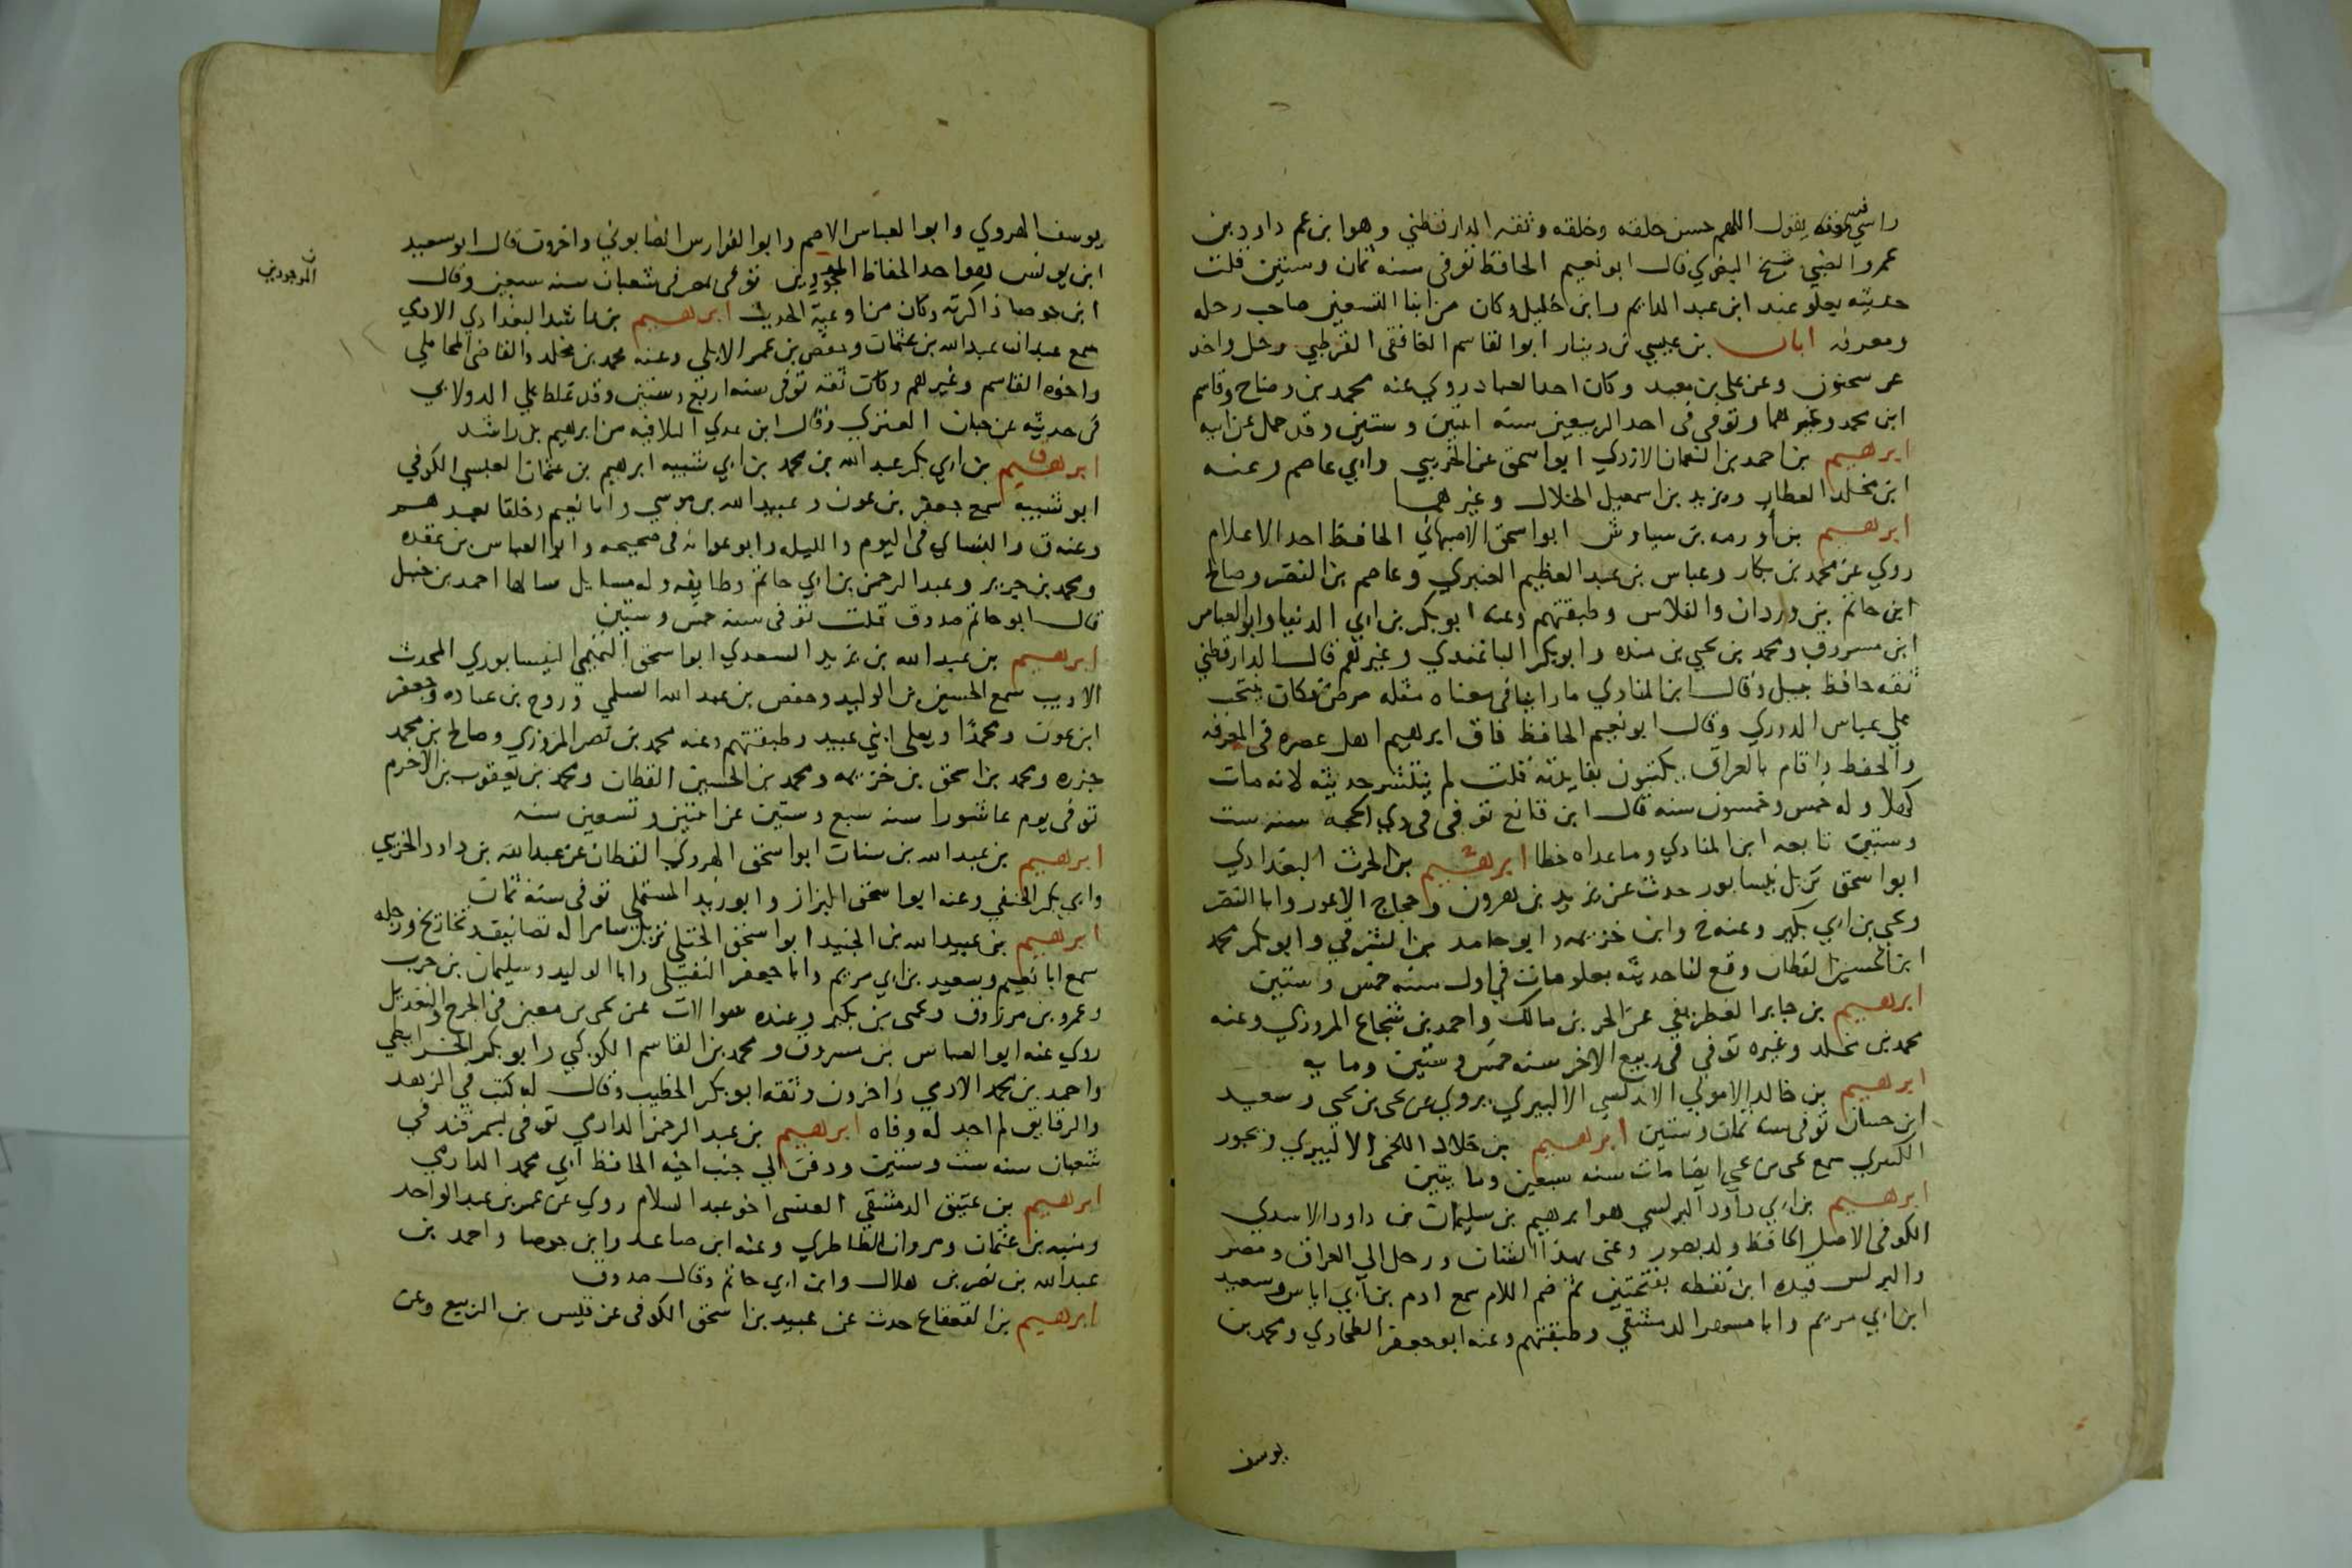 راسي يقول اللهم حسن خلقه وخلقه وثقه الدارقطني وهو ابن عم داود بن
عمرو الضبي شيخ البغوي قال ابو نعيم الحافظ توفي سنه ثمان وستين قلت
حديثه يعلو عند ابن عبد الدايم وابن خليل وكان من ابنا التسعين صاحب رحله
ومعرفه ابان بن عيسي بن دينار ابو القاسم الغافقي القرطبي رحل واخذ
عن سحنون وعن علي بن معبد وكان احد العباد روي عنه محمد بن وضاح وقاسم
ابن محمد وغيرهما وتوفي في احد الربيعين سنه اثنين وستين وقد حمل عن ابيه
ابرهيم بن احمد بن النعمان الازدي ابو اسحق عن الخريبي وابي عاصم وعنه
ابن مخلد العطار ويزيد بن اسمعيل الخلال وغيرهما
ابرهيم بن أورمه بن سياوش ابو اسحق الاصبهاني الحافظ احد الاعلام
روي عن محمد بن بكار وعباس بن عبد العظيم العنبري وعاصم بن النضر وصالح
ابن حاتم بن وردان والفلاس وطبقتهم وعنه ابو بكر بن ابي الدنيا وابو العباس
ابن مسروق ومحمد بن يحيي بن منده وابو بكر الباغندي وغيرهم قال الدارقطني
ثقه حافظ نبيل وقال ابن المنادي ما راينا في معناه مثله مرض وكان ينتخب
علي عباس الدوري وقال ابو نعيم الحافظ فاق ابرهيم اهل عصره في المعرفه
والحفظ واقام بالعراق يكتبون بفايدته قلت لم ينتشر حديثه لانه مات
كهلا وله خمس وخمسون سنه قال ابن قانع توفي في ذي الحجه سنه ست
وستين تابعه ابن المنادي وما عداه خطا ابرهيم بن الحرث البغدادي
ابو اسحق نزيل نيسابور حدث عن يزيد بن هرون وحجاج الاعور وابا النضر
ويحيي بن ابي بكير وعنه خ وابن خزيمه وابو حامد بن الشرقي وابو بكر محمد
ابن الحسين القطان وقع لنا حديثه بعلو مات في اول سنه خمس وستين
ابرهيم بن جابر القطريفي عن الحر بن مالك واحمد بن شجاع المروزي وعنه
محمد بن مخلد وغيره توفي في ربيع الاخر سنه خمس وستين ومايه
ابرهيم بن خالد الاموي الاندلسي الالبيري يروي عن يحيي بن يحيي وسعيد
ابن حسان توفي سنه ثمان وستين ابرهيم بن خلاد اللخمي الالبيري
سمع يحيي بن يحيي ايضا مات سنه سبعين ومايتين
ابرهيم بن ابي داود البرلسي هو ابرهيم بن سليمان بن داود الاسدي
الكوفي الاصل الحافظ ولد بصور وعني بهذا الشان ورحل الي العراق ومصر
والبرلس قيده ابن نقطه بفتحتين ثم ضم اللام سمع ادم بن ابي اياس وسعيد
ابن ابي مريم وابا مسهر الدمشقي وطبقتهم وعنه ابو جعفر الطحاوي ومحمد بن
يوسف
يوسف الهروي وابو العباس الاصم وابو الفوارس الصابوني واخرون قال ابو سعيد
ابن يونس هو احد الحفاظ المجودين توفي بمصر في شعبان سنه سبعين وقال
الموجودين
ابن جوصا ذاكرته وكان من اوعية الحديث ابرهيم بن راشد البغدادي الادمي
سمع عبدان عبد الله بن عثمان وحفص بن عمر الابلي وعنه محمد بن مخلد والقاضي المحاملي
واخوه القاسم وغيرهم وكان ثقه توفي سنه اربع وستين وقد غلط علي الدولابي
في حديثه عن حبان العنزي وقال ابن عدي البلا فيه من ابرهيم بن راشد
ابرهيم بن ابي بكر عبد الله بن محمد بن ابي شيبه ابرهيم بن عثمان العبسي الكوفي
ابو شيبه سمع جعفر بن عون وعبيد الله بن موسي وابا نعيم وخلقا بعدهم
وعنه ق والنساي في اليوم والليله وابو عوانه في صحيحه وابو العباس بن عقده
ومحمد بن جرير وعبد الرحمن بن ابي حاتم وطايفه وله مسايل سالها احمد بن حنبل
قال ابو حاتم صدوق قلت توفي سنه خمس وستين
ابرهيم بن عبد الله بن يزيد السعدي ابو اسحق التميمي النيسابوري المحدث
الاديب سمع الحسين بن الوليد وحفص بن عبد الله السلمي وروح بن عباده وجعفر
ابن عون ومحمدا ويعلي ابني عبيد وطبقتهم وعنه محمد بن نصر المروزي وصالح بن محمد
جزره ومحمد بن اسحق بن خزيمه ومحمد بن الحسين القطان ومحمد بن يعقوب بن الاخرم
توفي يوم عاشورا سنه سبع وستين عن اثنين وتسعين سنه
ابرهيم بن عبد الله بن سنان ابو اسحق الهروي القطان عن عبد الله بن داود الخريبي
وابي بكر الحنفي وعنه ابو اسحق البزاز وابو زيد المستملي توفي سنه ثمان
ابرهيم بن عبيد الله بن الجنيد ابو اسحق الختلي نزيل سامرا له تصانيف وتخاريج ورحله
سمع ابا نعيم وسعيد بن ابي مريم وابا جعفر النفيلي وابا الوليد وسليمان بن حرب
وعمرو بن مرزوق ويحيي بن بكير وعنده سوالات عن يحيي بن معين في الجرح والتعديل
روي عنه ابو العباس بن مسروق ومحمد بن القاسم الكوكبي وابو بكر الخرايطي
واحمد بن محمد الادمي واخرون وثقه ابو بكر الخطيب وقال له كتب في الزهد
والرقايق لم اجد له وفاه ابرهيم بن عبد الرحمن الدارمي توفي بسمرقند في
شعبان سنه ست وستين ودفن الي جنب اخيه الحافظ ابي محمد الدارمي
ابرهيم بن عتيق الدمشقي العنسي اخو عبد السلام روي عن عمر بن عبد الواحد
ومنبه بن عثمان ومروان الطاطري وعنه ابن صاعد وابن جوصا واحمد بن
عبد الله بن نصر بن هلال وابن ابي حاتم وقال صدوق
ابرهيم بن القعقاع حدث عن عبيد بن اسحق الكوفي عن قيس بن الربيع وعن